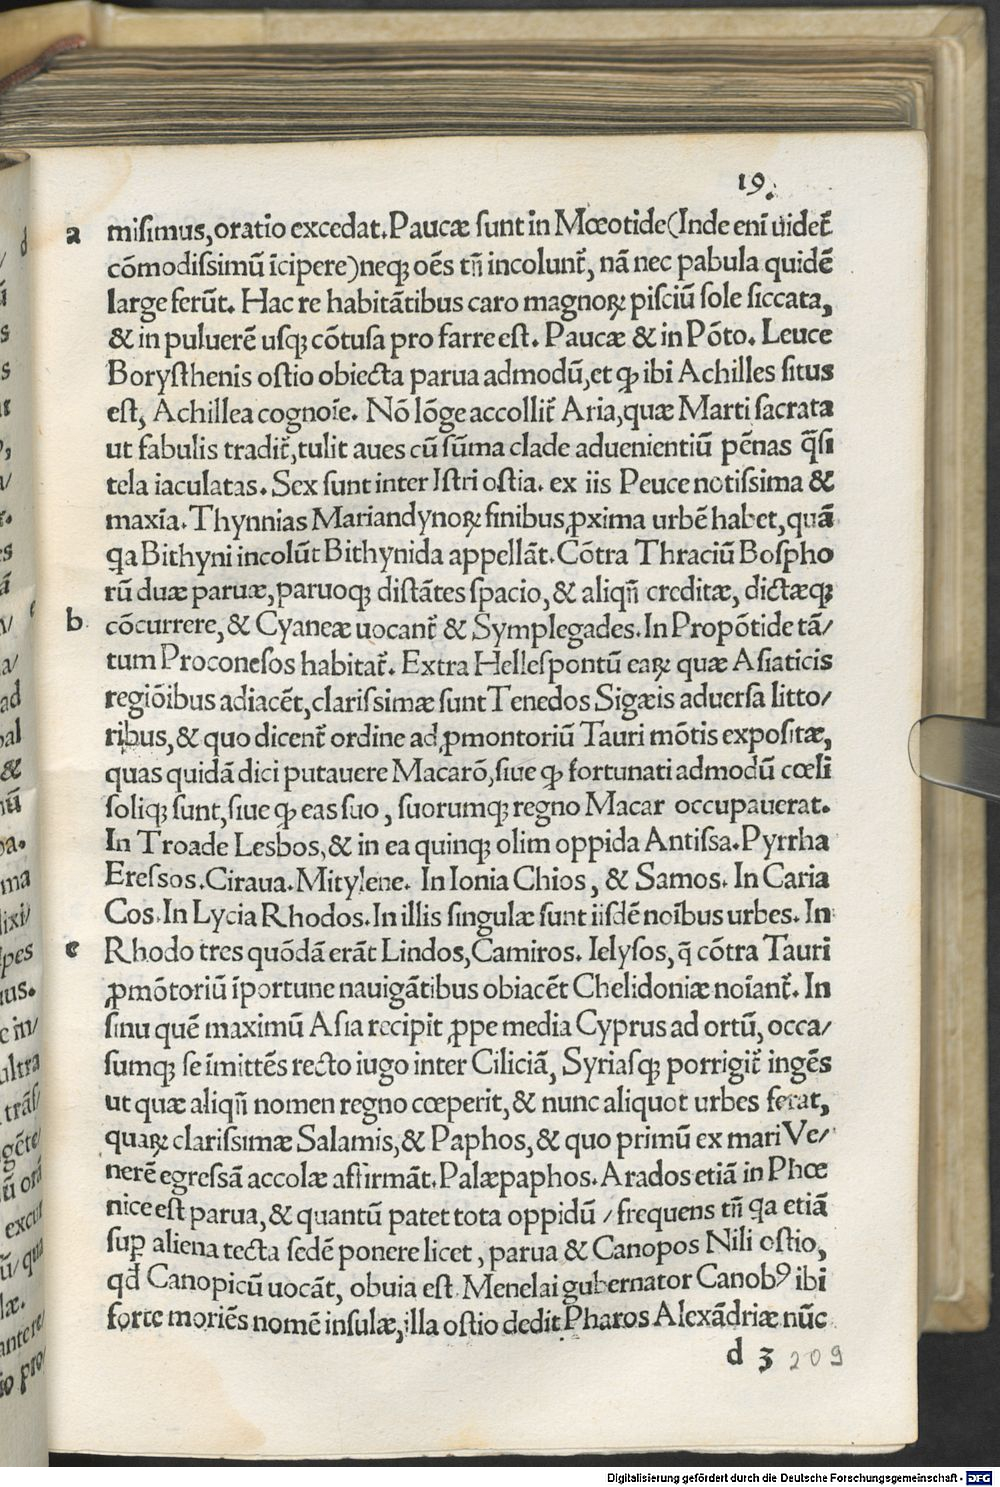 19.
a miſimus, oratio excedat. Paucæ ſunt in Mœotide(Inde enī uidet᷑
cōmodiſſimū īcipere)neqꝫ oēs tn̄ incolunt᷑, nā nec pabula quidē
large ferūt. Hac re habitātibus caro magnoꝝ piſciū ſole ſiccata,
& in puluerē uſqꝫ cōtuſa pro farre eſt. Paucæ & in Pōto. Leuce
Boryſthenis oſtio obiecta parua admodū, et ꝙ ibi Achilles ſitus
eſt, Achillea cognoīe. Nō lōge accollit᷑ Aria, quæ Marti ſacrata
ut fabulis tradit᷑, tulit aues cū ſūma clade aduenientiū pēnas q̄ſi
tela iaculatas. Sex ſunt inter Iſtri oſtia. ex iis Peuce notiſſima &
maxīa. Thynnias Mariandynoꝝ finibus ꝓxima urbē habet, quā
ꝗa Bithyni incolūt Bithynida appellāt. Cōtra Thraciū Boſpho
rū duæ paruæ, paruoqꝫ diſtātes ſpacio, & aliqn̄ creditæ, dictæqꝫ
b cōcurrere, & Cyaneæ uocant᷑ & Symplegades. In Propōtide tā/
tum Proconeſos habitat᷑. Extra Helleſpontū eaꝝ quæ Aſiaticis
regiōibus adiacēt, clariſſimæ ſunt Tenedos Sigæis aduerſa litto/
ribus, & quo dicent᷑ ordine ad ꝓmontoriū Tauri mōtis expoſitæ,
quas quidā dici putauere Macarō, ſiue ꝙ fortunati admodū cœli
ſoliqꝫ ſunt, ſiue ꝙ eas ſuo, ſuorumqꝫ regno Macar occupauerat.
In Troade Lesbos, & in ea quinqꝫ olim oppida Antiſſa. Pyrrha
Ereſſos. Ciraua. Mitylene. In Ionia Chios, & Samos. In Caria
Cos. In Lycia Rhodos. In illis ſingulæ ſunt iiſdē noībus urbes. In
c Rhodo tres quōdā erāt Lindos, Camiros. Ielyſos, q̄ cōtra Tauri
ꝓmōtoriū īportune nauigātibus obiacēt Chelidoniæ noīant᷑. In
ſinu quē maximū Aſia recipit ꝓpe media Cyprus ad ortū, occa/
ſumqꝫ ſe īmittēs recto iugo inter Ciliciā, Syriaſqꝫ porrigit᷑ ingēs
ut quæ aliqn̄ nomen regno cœperit, & nunc aliquot urbes ferat,
quaꝝ clariſſimæ Salamis, & Paphos, & quo primū ex mari Ve/
nerē egreſſā accolæ affirmāt. Palæpaphos. Arados etiā in Phœ
nice eſt parua, & quantū patet tota oppidū / frequens tn̄ ꝗa etiā
ſuꝑ aliena tecta ſedē ponere licet, parua & Canopos Nili oſtio,
qd̄ Canopicū uocāt, obuia eſt. Menelai gubernator Canobꝰ ibi
forte moriēs nomē inſulæ, illa oſtio dedit Pharos Alexādriæ nūc
d 3 209
Digitalisierung gefördert durch die Deutsche Forschungsgemeinschaft - DFG